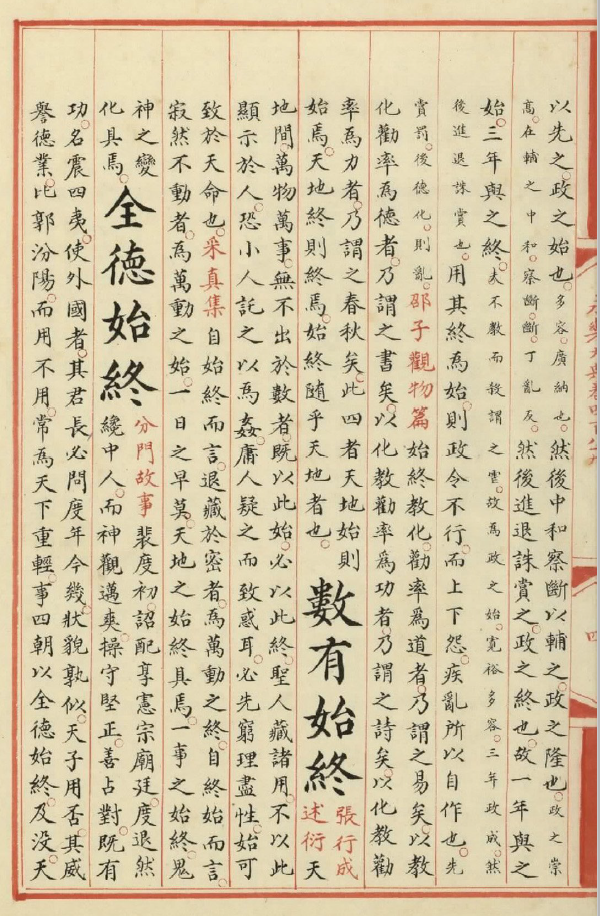 以先之。政之始也。多容廣納也。然後中和察斷以輔之。政之隆也。政之崇
高。在輔之中和。察斷。斷。丁亂反。然後進退誅賞之。政之終也。故一年與之
始。三年與之終。夫不教而殺謂之虐。故為政之始。寬裕多容。三年政成。然
後進退誅賞也。用其終為始。則政令不行。而上下怨疾。亂所以自作也。先
賞罰。後德化。則亂。邵子觀物篇始終教化。勸率爲道者。乃謂之易矣。以教
化勸率爲德者。乃謂之書矣。以化教勸率爲功者。乃謂之詩矣。以化教勸
率爲力者。乃謂之春秋矣。此四者天地始則
始焉。天地終則終焉。始終隨乎天地者也。
數有始終
張行成
述衍天
地間。萬物萬事。無不出於數者。既以此始。必以此終。聖人藏諸用。不以此
顯示於人。恐小人託之以爲姦。庸人疑之而致惑耳。必先窮理盡性。始可
致於天命也。采真集自始終而言。退藏於密者。爲萬動之終。自終始而言。
寂然不動者。爲萬動之始。一日之早莫。天地之始終具焉。一事之始終。鬼
神之變
化具焉。
全德始終
分門故事裴度初。詔配享憲宗廟廷。度退然
纔中人。而神觀邁爽。操守堅正。善占對。既有
功。名震四夷。使外國者。其君長必問度年今幾。狀貌孰似。天子用否。其威
譽德業。比郭汾陽。而用不用。常爲天下重輕。事四朝。以全德始終。及没。天
四